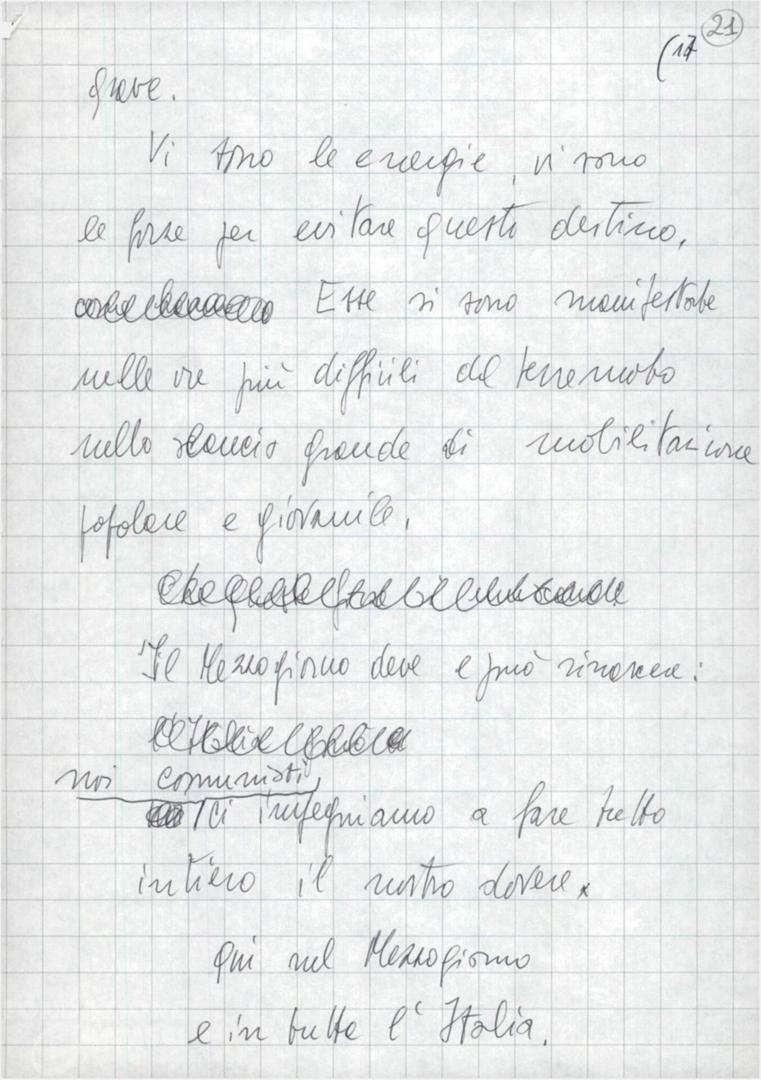 21
(17
grave.
Vi sono le energie, vi sono
le forze per evitare questo destino.
Esse si sono manifestate
nelle ore più difficili del terremoto
nello slancio grande di mobilitazione
popolare e giovanile.
Il Mezzogiorno deve e può rinascere:
noi comunisti,
ci impegniamo a fare tutto
intiero il nostro dovere
qui nel Mezzogiorno
e in tutta l'Italia.